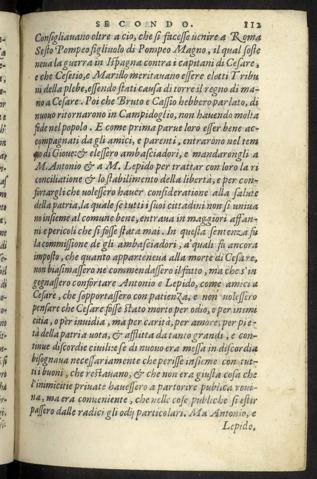 SECONDO. 112
Consigliavano oltre a cio, che si facesse venire a Roma
Sesto Pompeo figliuolo di Pompeo Magno, il qual soste
neua la guerra in Ispagna contra i capitani di Cesare,
e che Cesetio, e Marillo meritauano essere eletti Tribu
ni della plebe, essendo stati causa di torre il regno di ma-
no a Cesare. Poi che Bruto e Cassio hebbero parlato, di
nuouo ritornarono in Campidoglio, non hauendo molta
fede nel popolo. E come prima parue loro esser bene ac-
compagnati da gli amici, e parenti, entrarono nel tem
pio di Gioue: & elessero ambasciadori, e mandarongli a
M. Antonio & a M. Lepido per trattar con loro la ri
conciliatione & lo stabilimento della libertà, e per con-
fortargli che volessero hauer consideratione alla salute
della patria, la quale se tutti i suoi cittadini non si univa
no insieme al comune bene, entraua in maggiori affan-
ni e pericoli che si fosse stata mai. In questa sentenza fu
la commissione de gli ambasciadori, a' quali fu ancora
imposto, che quanto apparteneua alla morte di Cesare,
non biasimassero ne commendassero il fatto, ma che s'in
gegnassero confortare Antonio e Lepido, come amici a
Cesare, che sopportassero con patienza, e non volessero
pensare che Cesare fosse stato morto per odio, o per inimi
citia, o per inuidia, ma per carità, per amore, per pie-
tà della patria vota, & afflitta da tanto grandi, e con-
tinue discordie ciuili: e se di nuouo era messa in discordia
bisognaua necessariamente che perisse insieme con tut-
ti i buoni, che restauano, & che non era giusta cosa che
l'inimicitie private hauessero a partorire publica roui-
na, ma era conueniente, che nelle cose publiche si estir
passero dalle radici gli odij particolari. Ma Antonio, e
Lepido,